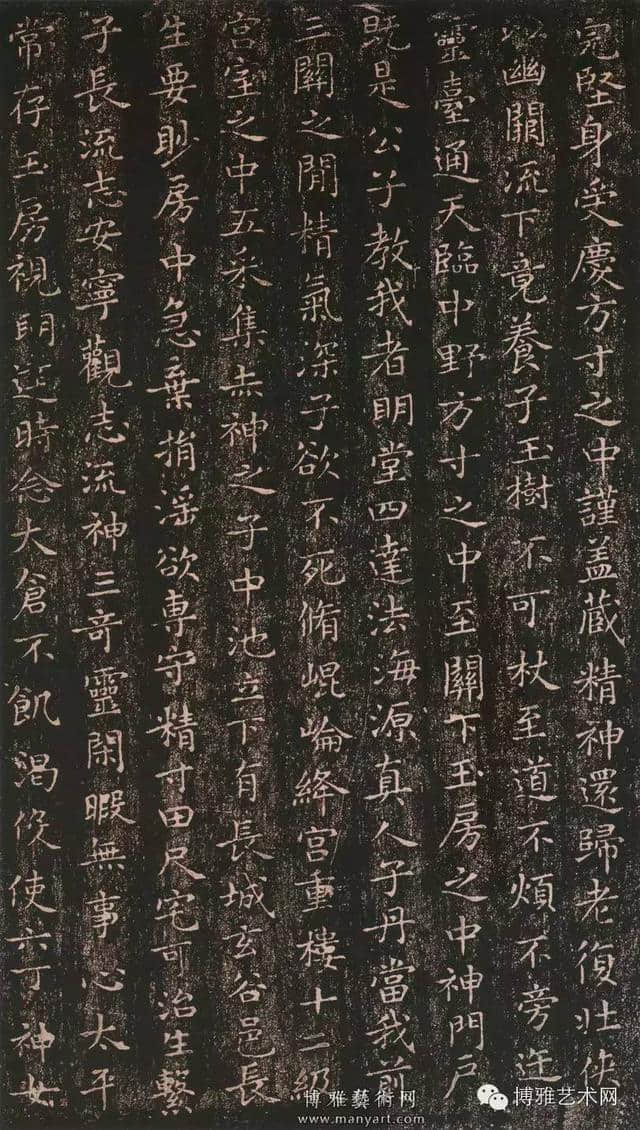 完堅身受慶方寸之中謹盖藏精神還歸老復壯俠
以幽關流下竟養子玉樹不可杖至道不煩不旁迕
靈臺通天臨中野方寸之中至關下玉房之中神門戶
既是公子教我者明堂四達法海源真人子丹當我前
三關之閒精氣深子欲不死脩崐崘絳宮重樓十二級
宮室之中五采集赤神之子中池立下有長城玄谷邑長
生要眇房中急棄捐淫欲專守精寸田尺宅可治生繫
子長流志安寧觀志流神三奇靈閑暇無事心太平
常存玉房視明达時念大倉不飢渴伇使六丁神女
博雅藝術网
www.manyart.com
博雅艺术网